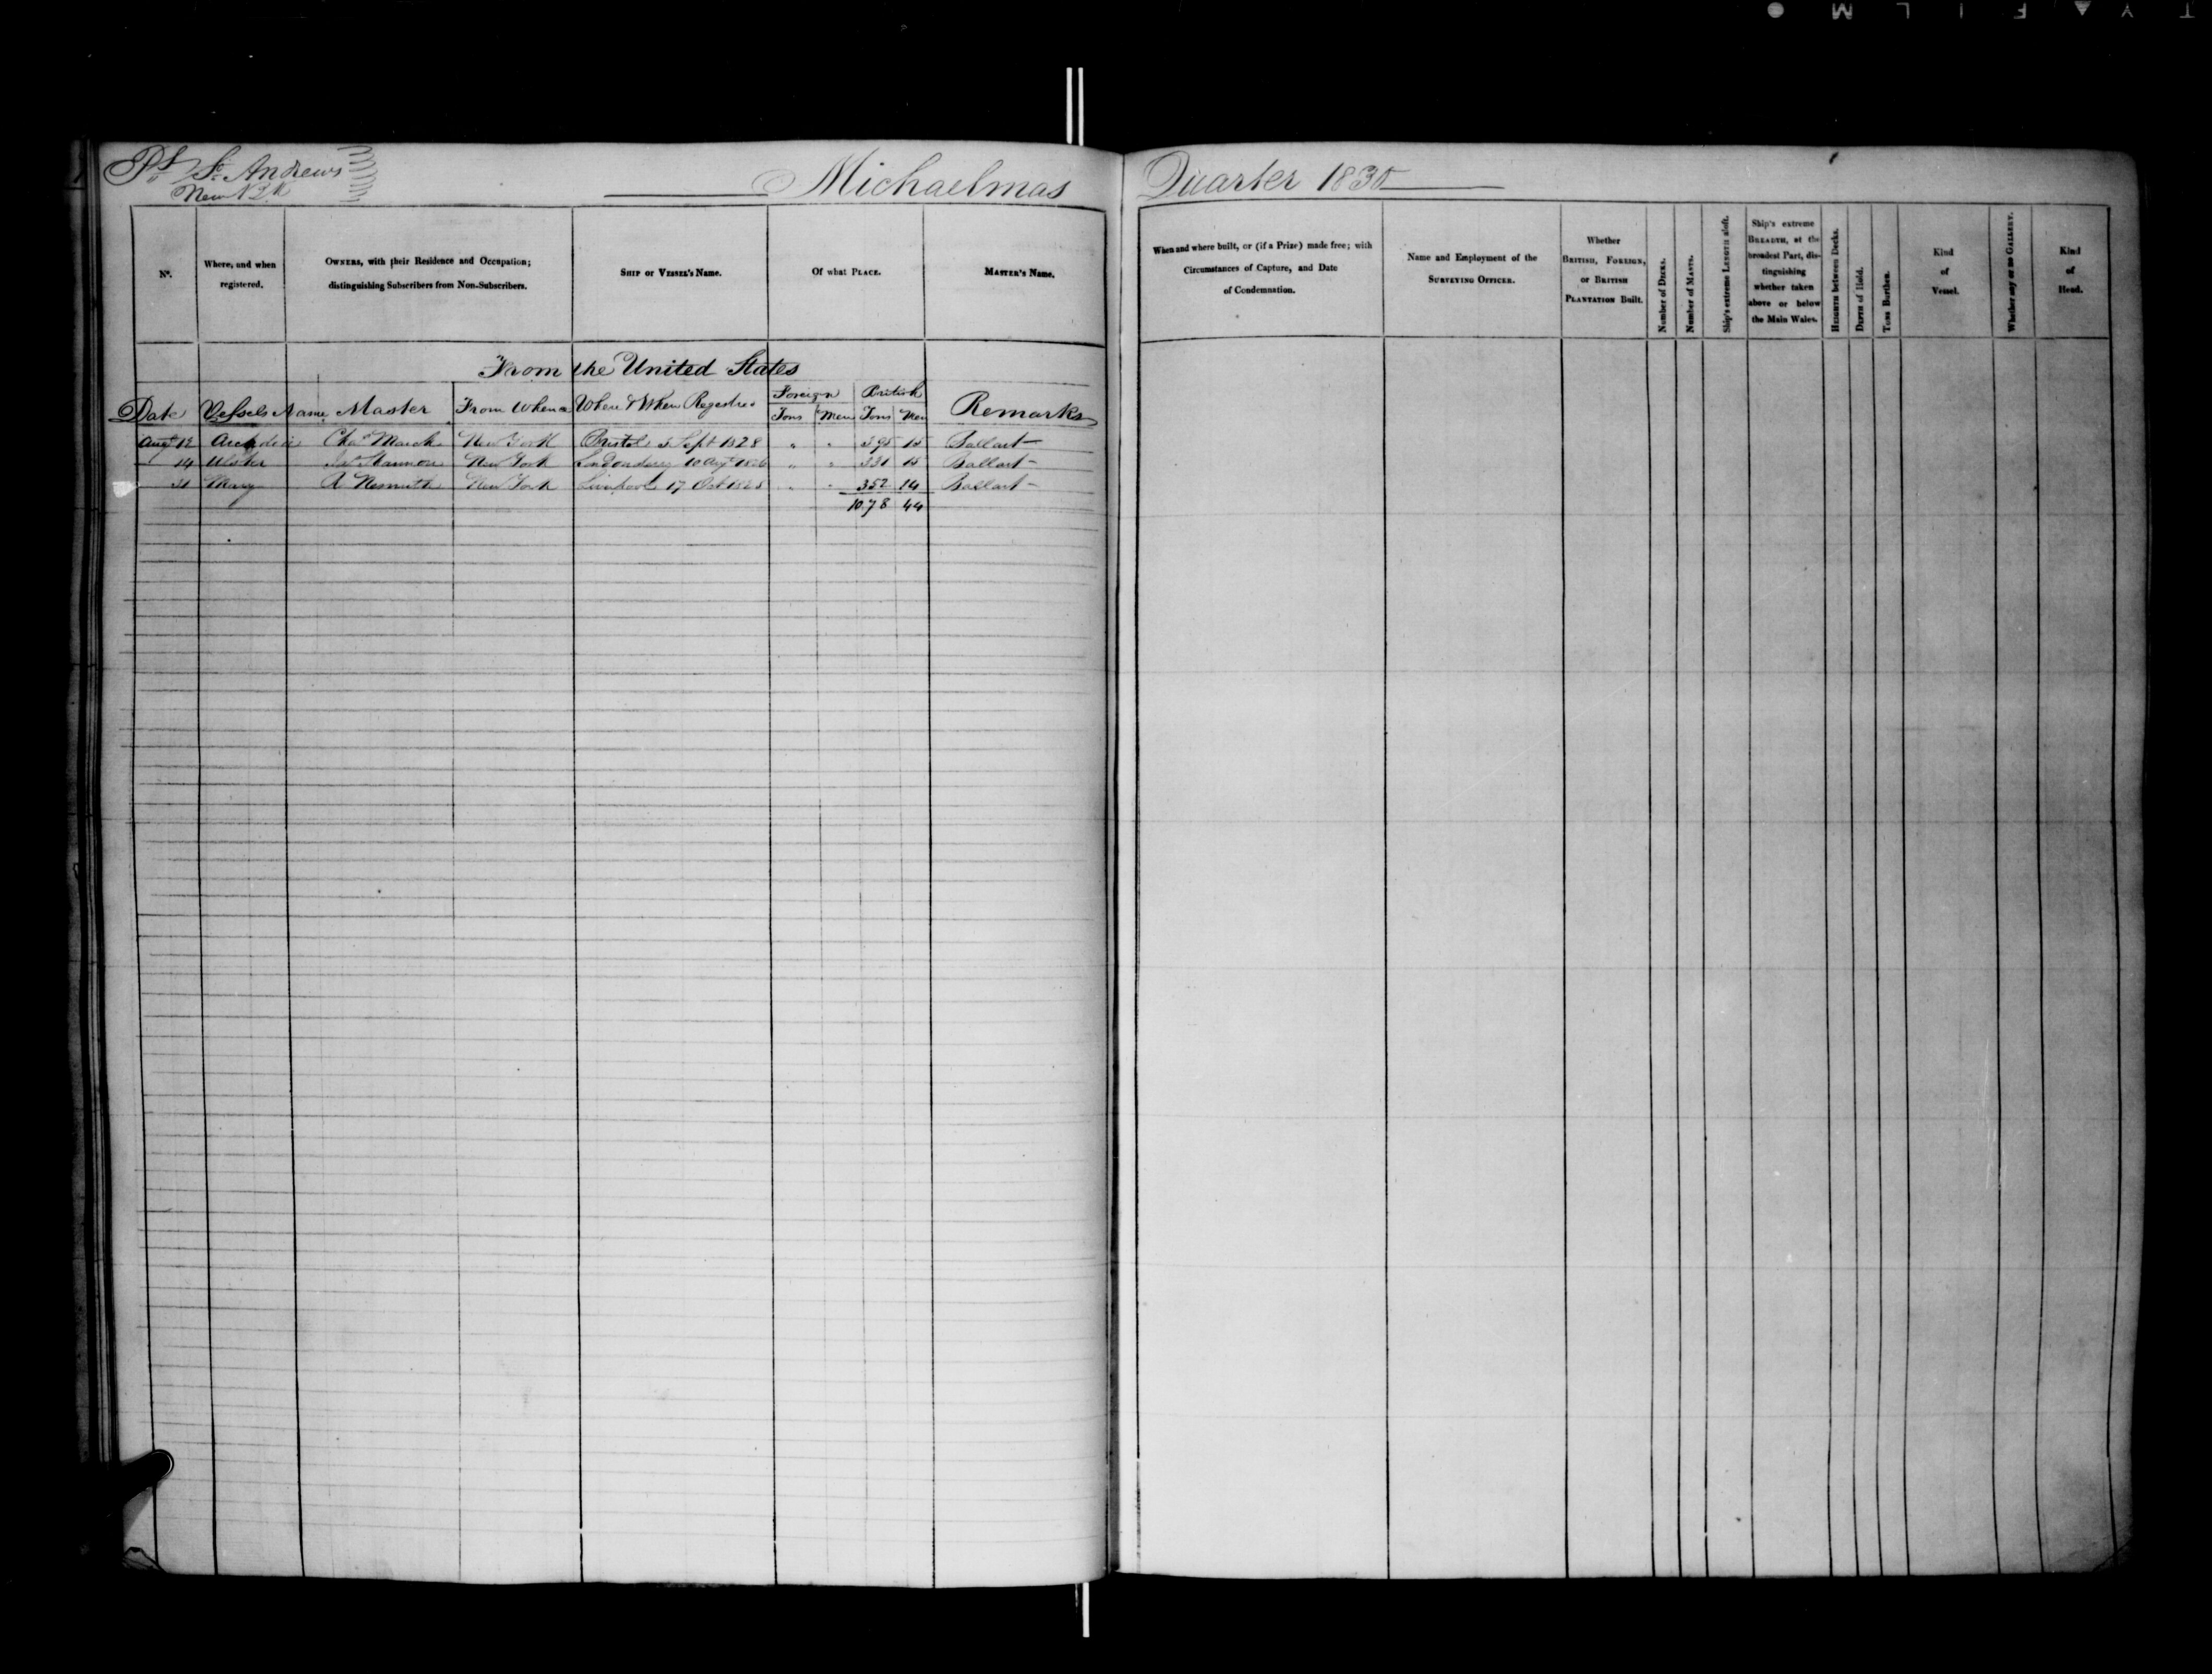 Pt St Andrews
New B.k
Michaelmas Quarter 1830
No.
Where, and when
registered.
OWNERS, with their Residence and Occupation;
distinguishing Subscribers from Non-Subscribers.
SHIP or VESSEL'S Name.
Of what PLACE.
MASTER'S Name.
When and where built, or (if a Prize) made free; with
Circumstances of Capture, and Date
of Condemnation.
Name and Employment of the
SURVEYING OFFICER.
Whether
BRITISH, FOREIGN,
or BRITISH
PLANTATION Built.
Number of DECKS.
Number of MASTS.
Ship's extreme LENGTH aloft.
Ship's extreme
BREADTH, at the
broadest Part, dis-
tinguishing
whether taken
above or below
the Main Wales.
HEIGHTH between Decks.
DEPTH of Hold.
TONS Burthen.
Kind
of
Vessel.
Whether any or no GALLERY.
Kind
of
Head.
From the United States
Date Vessels Name Master From Whence Where & When Registered Foreign British Remarks
Tons Men Tons Men
Augt 12 Chas March New York Bristol 5 Sept 1828 " " 395 15 Ballast
14 Ulster New York Londonderry 10 Augt 1826 " " 331 15 Ballast
31 Mary A Nesmith New York Liverpool 17 Oct 1828 " " 352 14 Ballast
1078 44